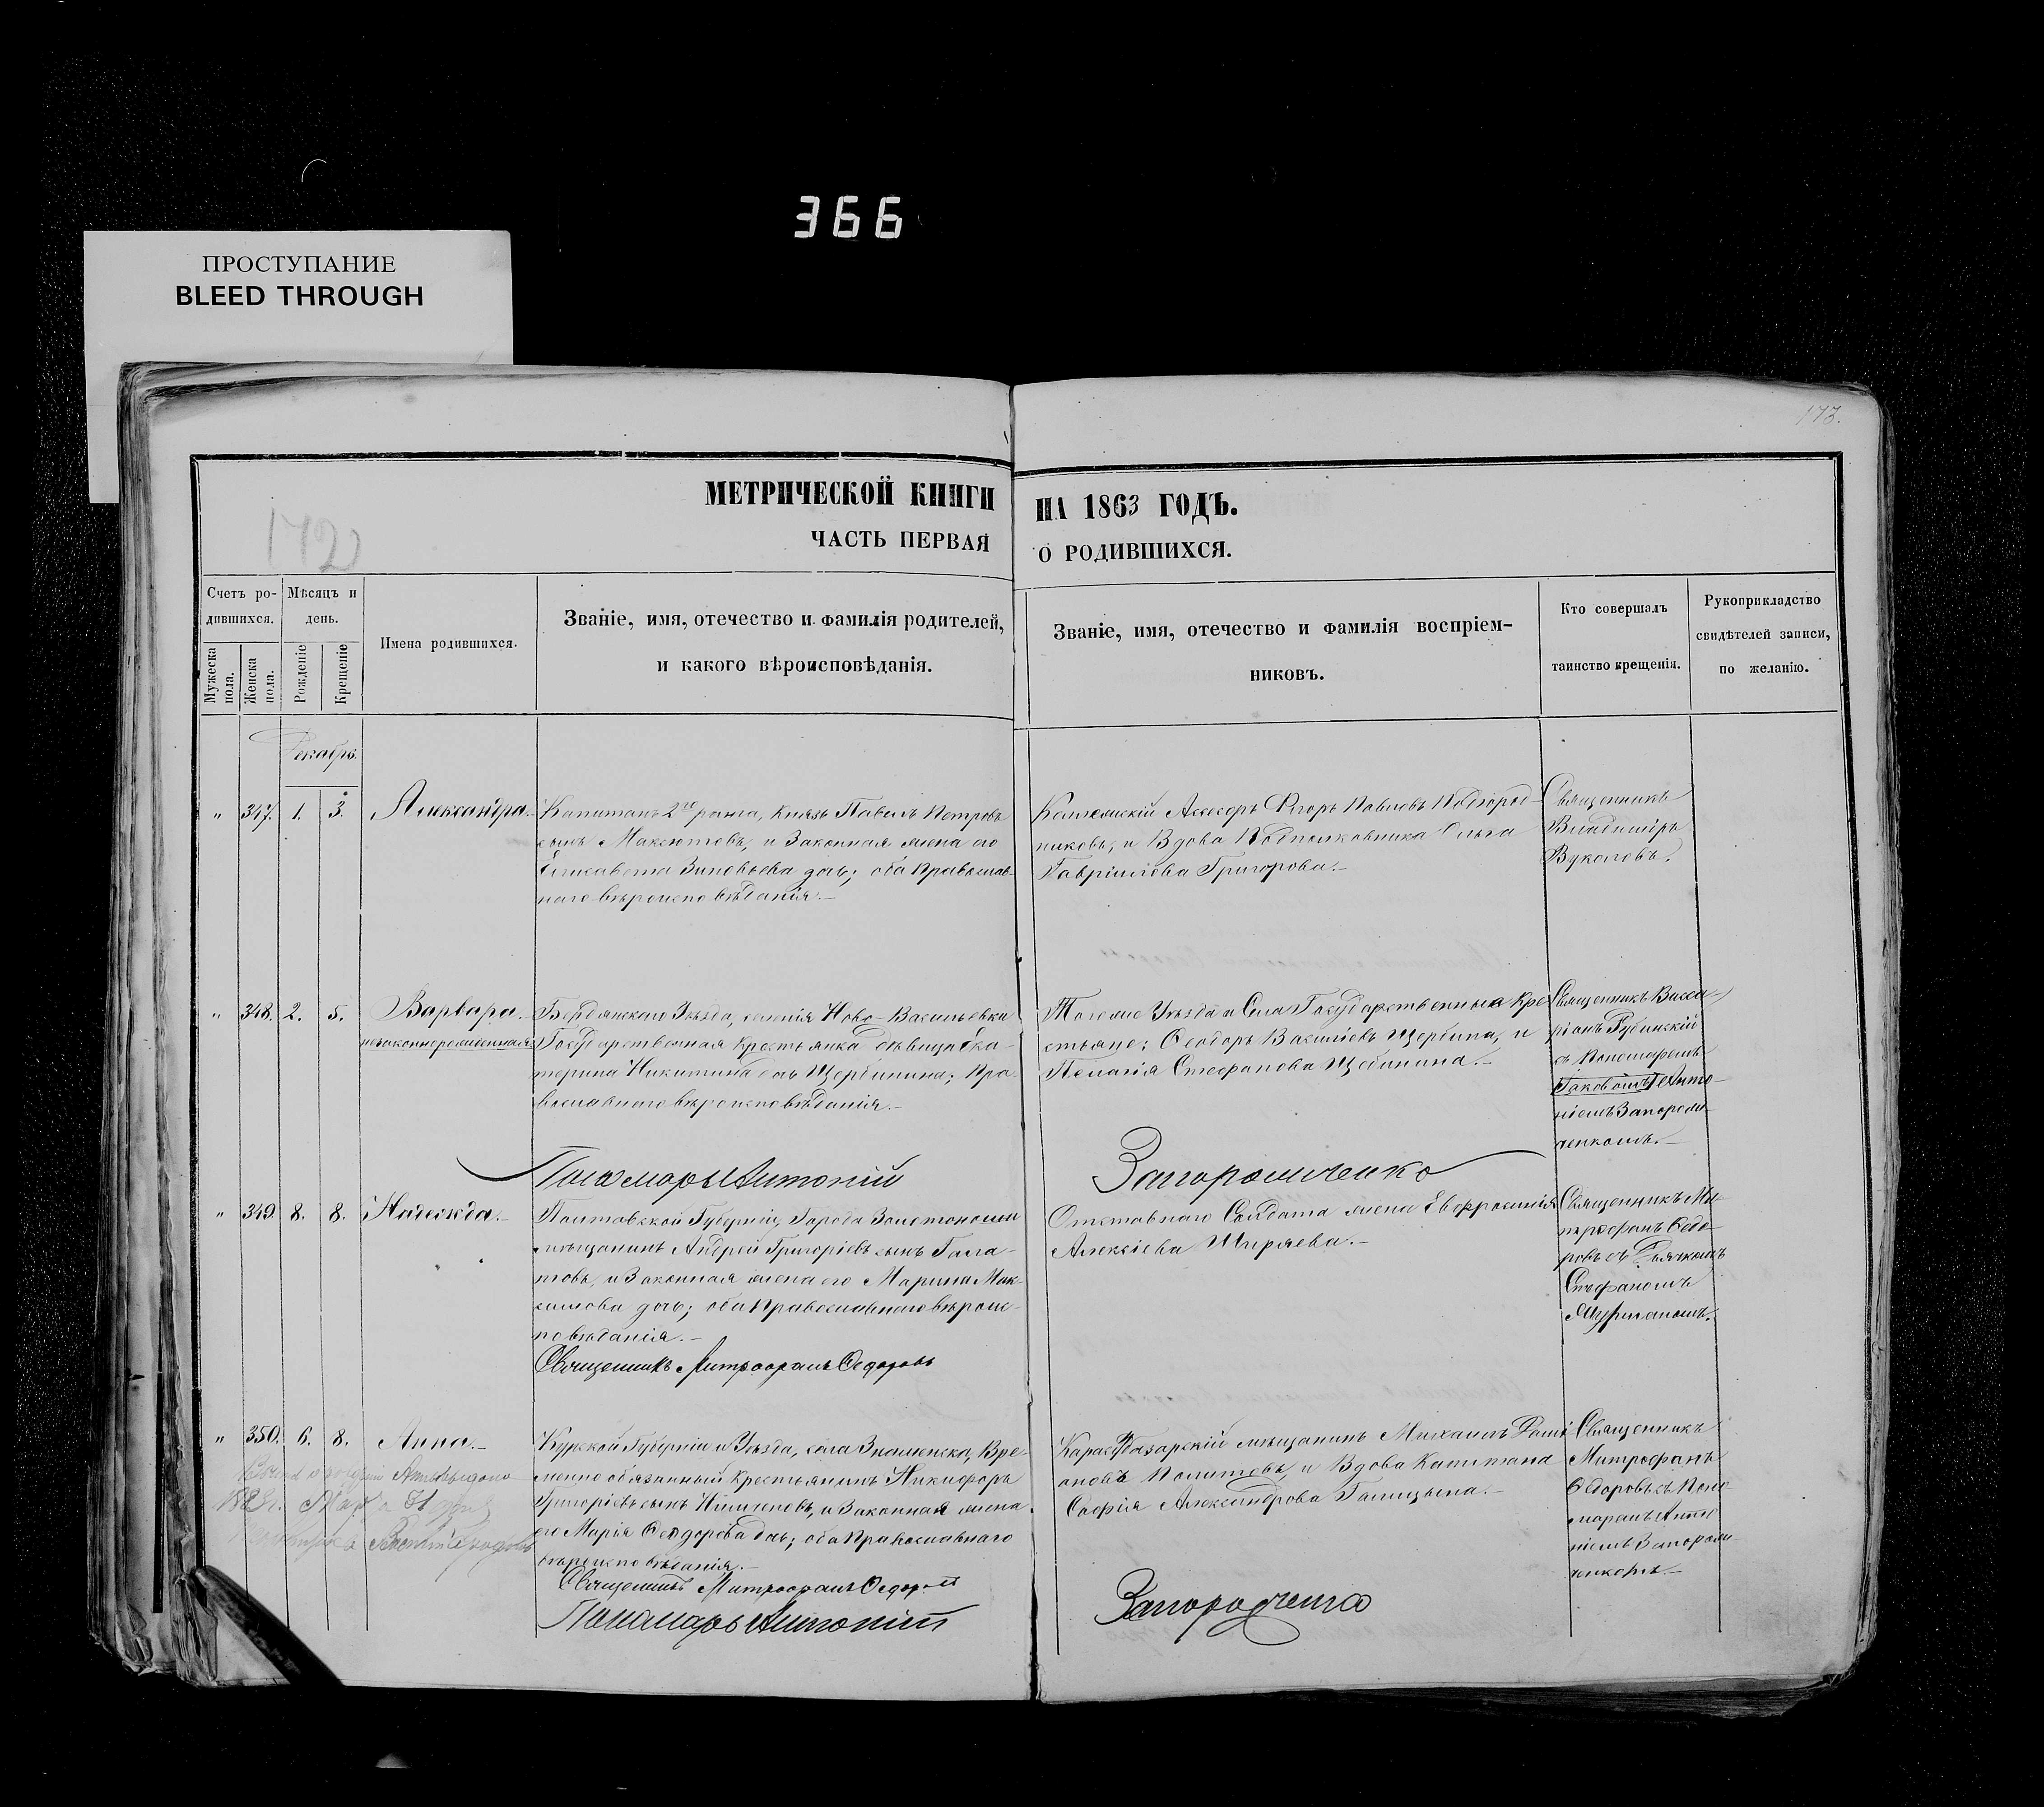 366
ПРОСТУПАНИЕ
BLEED THROUGH
173.
172
МЕТРИЧЕСКОЙ КНИГИ НА 1863 ГОДЪ.
ЧАСТЬ ПЕРВАЯ О РОДИВШИХСЯ.
Счетъ ро-
дившихся.
Мужеска пола.
Женска пола.
Мѣсяцъ и
день.
Рожденіе
Крещеніе
Имена родившихся.
Званіе, имя, отечество и фамилія родителей,
и какого вѣроисповѣданія.
Званіе, имя, отечество и фамилія воспріем-
никовъ.
Кто совершалъ
таинство крещенія.
Рукоприкладство
свидѣтелей записи,
по желанію.
Декабрь.
„ 347. 1. 3. Александра.
Капитанъ 2го ранга, Князь Павелъ Петровъ
сынъ Максютовъ, и Законная жена его
Елисавета Зиновьева дочь; оба Православ-
наго вѣроисповѣданія.—
Павловъ
никовъ, и Вдова Подполковника Ольга
Гавріилова Григорова.—
Священникъ
Владиміръ
Вуколовъ.
„ 348. 2. 5. Варвара.
незаконнорожденная
Бердянскаго Уѣзда, селенія Ново-Васильевки
Государственная крестьянка дѣвица Ека-
терина Никитина дочь Щербинина; Пра-
вославнаго вѣроисповѣданія.—
Тогоже Уѣзда и Села Государственныя Кре-
стьяне: Ѳеодоръ Васильевъ Щербина, и
Пелагія Стефанова
Священникъ Висса-
ріонъ Рубинскій
съ Пономаремъ
Анто-
ніемъ Запорож-
ченкомъ.—
Пономарь Антоній Запорожченко
„ 349. 8. 8. Надежда.—
Полтавской Губерніи, Города Золотоноши
мѣщанинъ Андрей Григорьевъ сынъ Гала-
товъ, и Законная жена его Марина Мак-
симова дочь; оба Православнаго вѣроис-
повѣданія.—
Священникъ Митрофанъ Ѳедоровъ
Отставнаго Солдата жена Евфросинія
Алексіева Ширяева.—
Священникъ Ми-
трофанъ Ѳедо-
ровъ съ Дьячкомъ
Стефаномъ
„ 350. 6. 8. Анна.—
Курской Губерніи и Уѣзда, села Знаменска, Вре-
менно обязанный Крестьянинъ Никифоръ
Григорьевъ сынъ и Законная жена
его Марія Ѳеодорова дочь; оба Православнаго
вѣроисповѣданія.—
Священникъ Митрофанъ Ѳедоровъ
Карасубазарскій мѣщанинъ Михаилъ
и Вдова Капитана
Софія Александрова Галицына.—
Священникъ
Митрофанъ
Ѳедоровъ съ Поно-
маремъ Анто-
ніемъ Запорож-
ченкомъ.—
Пономарь Антоній Запорожченко